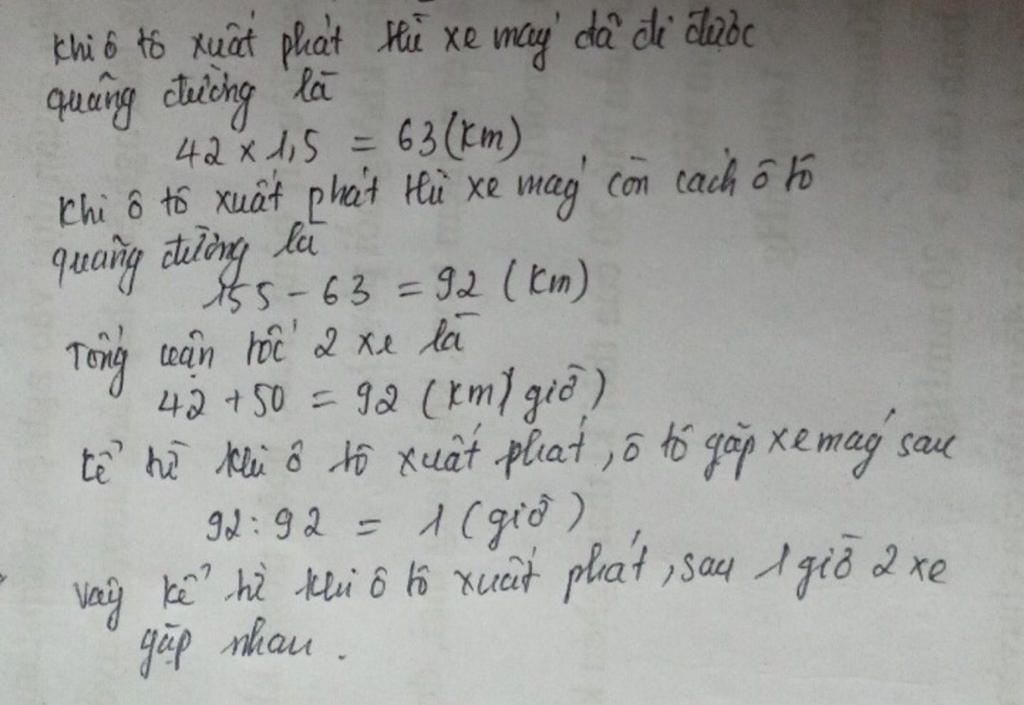 Khi ô tô xuất phát thì xe máy đã đi được
quãng đường là
42 x 1,5 = 63 (km)
Khi ô tô xuất phát thì xe máy còn cách ô tô
quãng đường là
155 - 63 = 92 (km)
Tổng vận tốc 2 xe là
42 + 50 = 92 (km/giờ)
kể từ khi ô tô xuất phát, ô tô gặp xe máy sau
92 : 92 = 1 (giờ)
vậy kể từ khi ô tô xuất phát, sau 1 giờ 2 xe
gặp nhau.